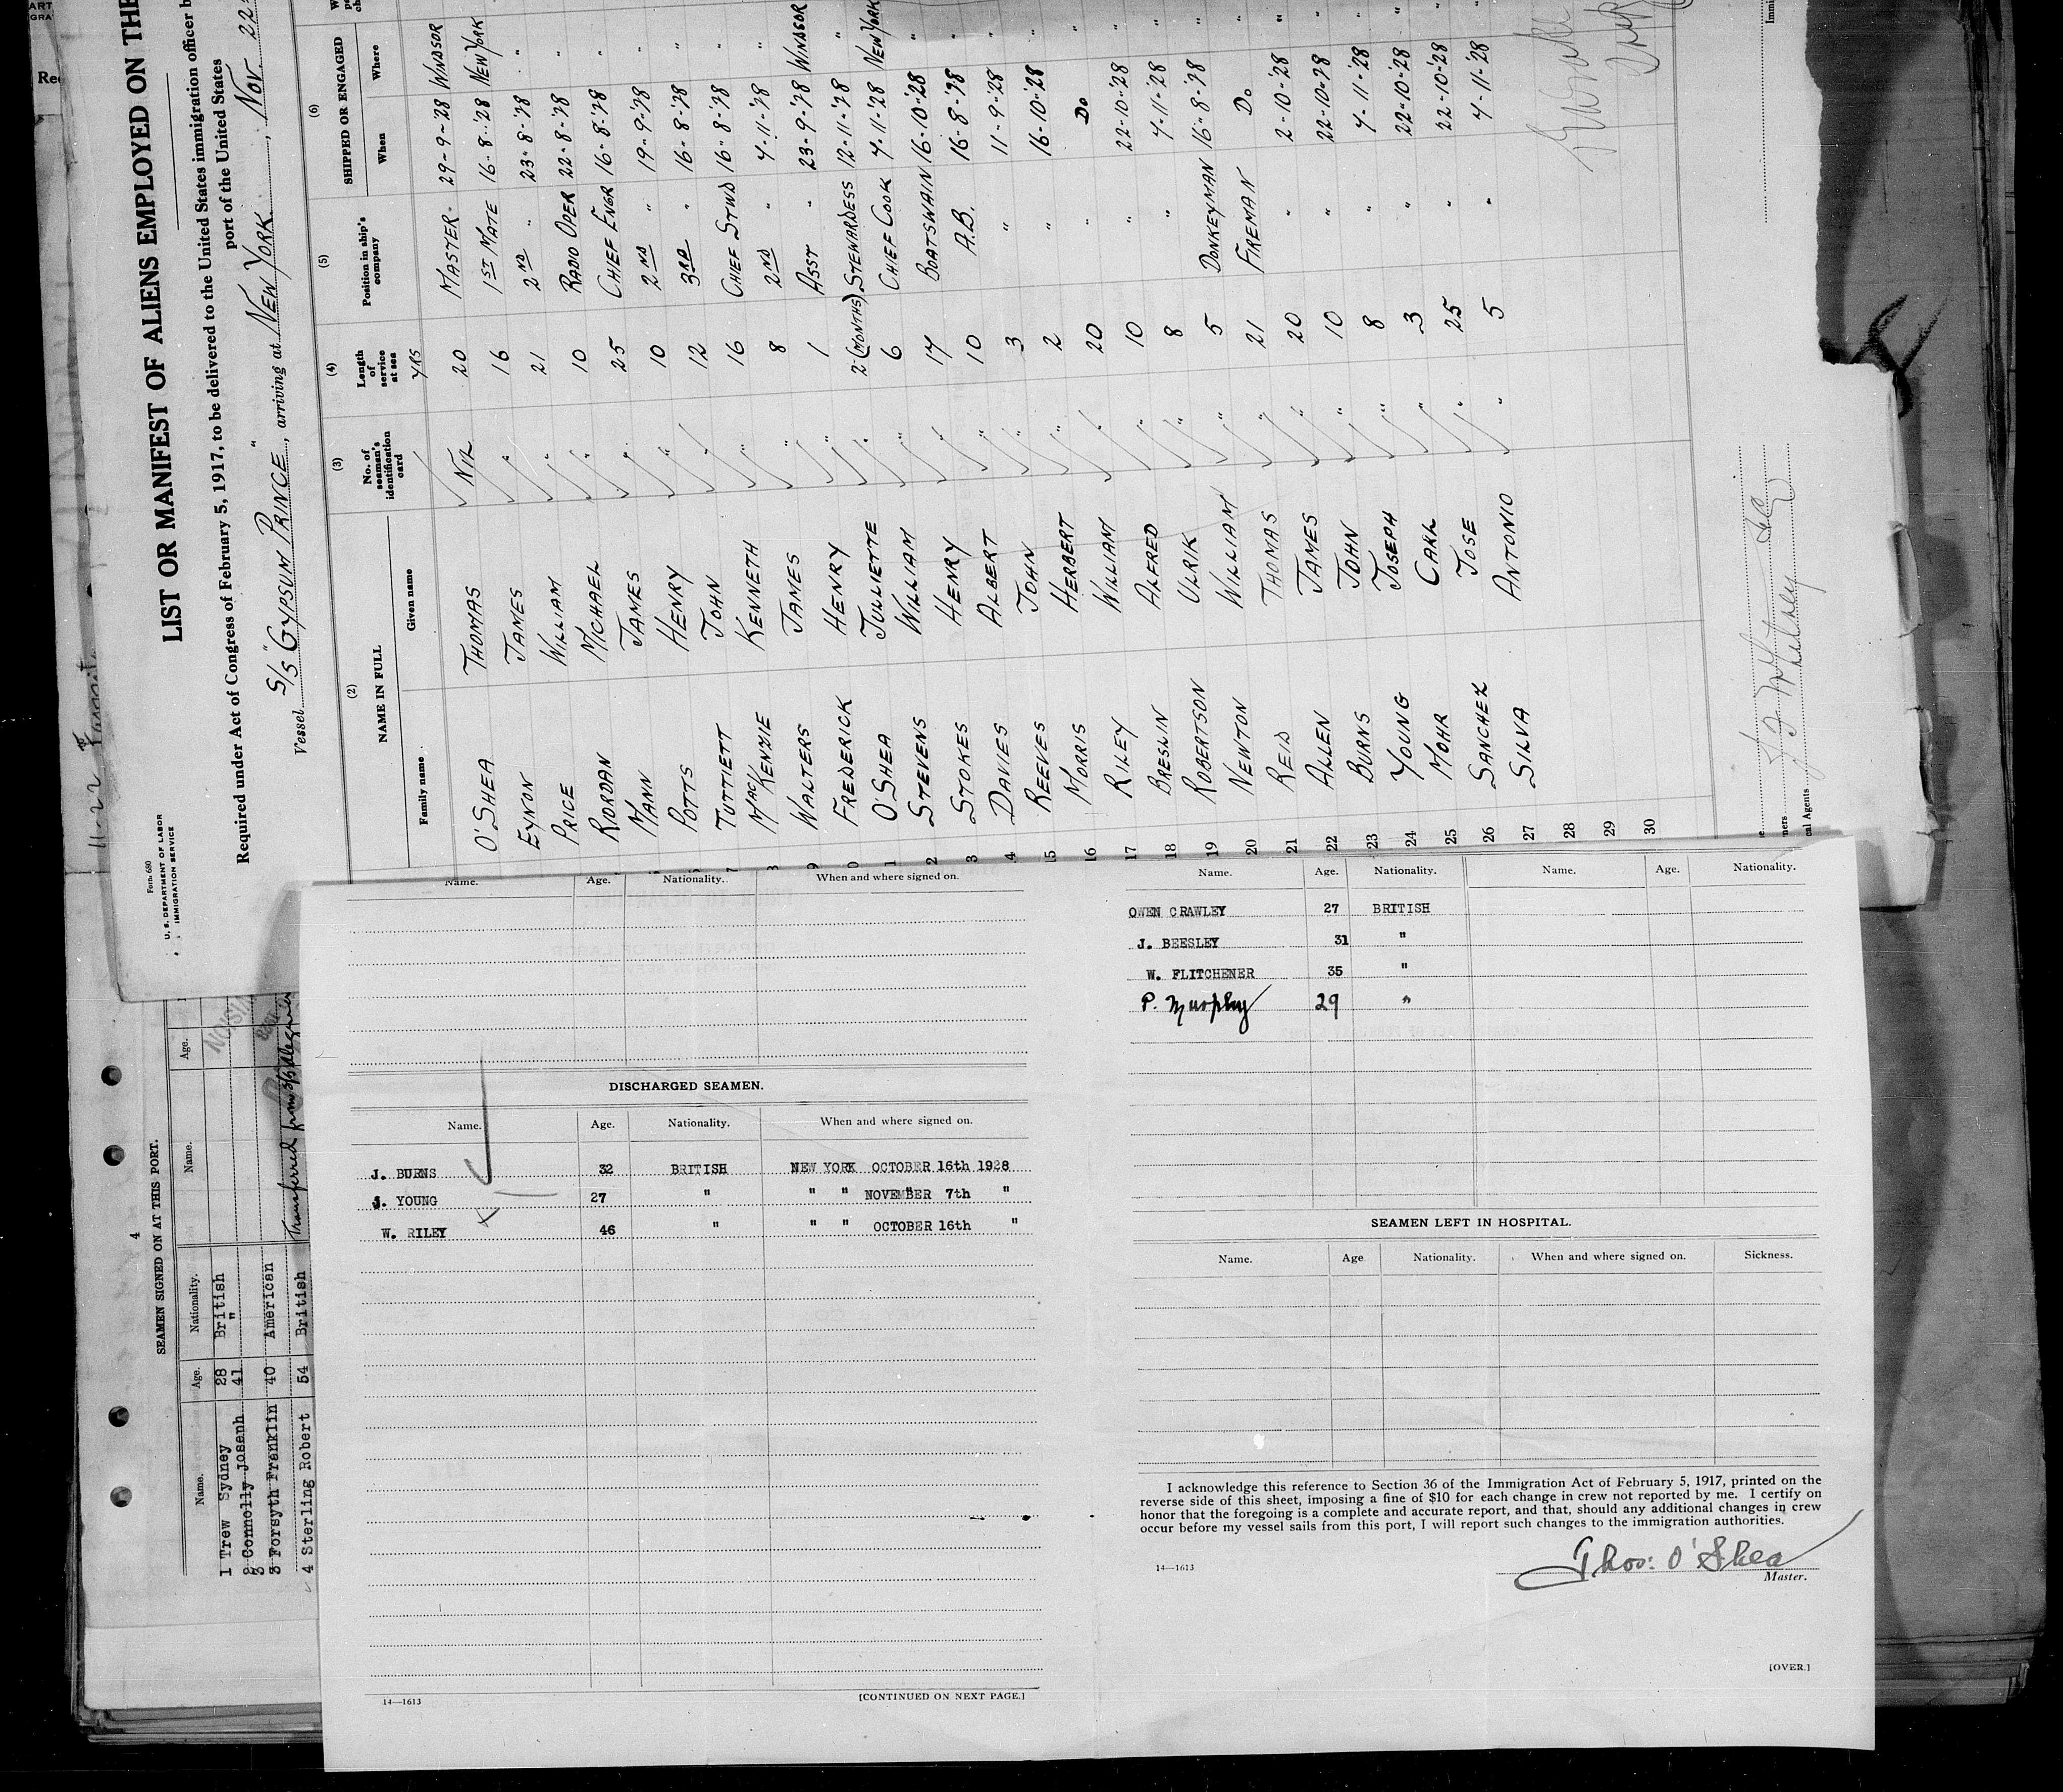 Form 680
U. S. DEPARTMENT OF LABOR
IMMIGRATION SERVICE
LIST OR MANIFEST OF ALIENS EMPLOYED ON THE
Required under Act of Congress of February 5, 1917, to be delivered to the United States immigration officer b
port of the United States
Vessel S/S "GYPSUM PRINCE", arriving at NEW YORK, Nov. 22
(2) (3) (4) (5) (6)
NAME IN FULL No. of seaman's identification card Length of service at sea Position in ship's company SHIPPED OR ENGAGED
Family name Given name When Where
YRS
O'SHEA THOMAS NIL 20 MASTER 29-9-28 WINDSOR
EYNON JAMES " 16 1ST MATE 16-8-'28 NEW YORK
PRICE WILLIAM " 21 2ND " 23-8-'28 "
RIORDAN MICHAEL " 10 RADIO OPER 22-8-'28 "
MANN JAMES " 25 CHIEF ENGR 16-8-'28 "
POTTS HENRY " 10 2ND " 19-9-'28 "
7 TUTTIETT JOHN " 12 3RD " 16-8-'28 "
8 MACKENZIE KENNETH " 16 CHIEF STWD 16-8-'28 "
9 WALTERS JAMES " 8 2ND " 4-11-'28 "
0 FREDERICK HENRY " 1 ASST " 23-9-'28 WINDSOR
1 O'SHEA JULLIETTE " 2 (MONTHS) STEWARDESS 12-11-'28 "
2 STEVENS WILLIAM " 6 CHIEF COOK 4-11-'28 NEW YORK
3 STOKES HENRY " 17 BOATSWAIN 16-10-'28 "
4 DAVIES ALBERT " 10 A.B. 16-8-'28 "
15 REEVES JOHN " 3 " 11-9-'28 "
16 MORRIS HERBERT " 2 " 16-10-'28 "
17 RILEY WILLIAM " 20 " DO "
18 BRESLIN ALFRED " 10 " 22-10-'28 "
19 ROBERTSON ULRIK " 8 " 4-11-'28 "
20 NEWTON WILLIAM " 5 DONKEYMAN 16-8-'28 "
21 REID THOMAS " 21 FIREMAN DO "
22 ALLEN JAMES " 20 " 2-10-'28 "
23 BURNS JOHN " 10 " 22-10-'28 "
24 YOUNG JOSEPH " 8 " 4-11-'28 "
25 MOHR CARL " 3 " 22-10-'28 "
26 SANCHEZ JOSE " 25 " 22-10-'28 "
27 SILVA ANTONIO " 5 " 4-11-'28 "
28
29
30
4
SEAMEN SIGNED ON AT THIS PORT.
Name. Age. Nationality. Name. Age.
1 Trew Sydney 28 British
2 Connolly Joseph 41 "
3 Forsyth Franklin 40 American
4 Sterling Robert 54 British Transferred from
Name. Age. Nationality. When and where signed on.
DISCHARGED SEAMEN.
Name. Age. Nationality. When and where signed on.
J. BURNS 32 BRITISH NEW YORK OCTOBER 16th 1928
J. YOUNG 27 " " " NOVEMBER 7th "
W. RILEY 46 " " " OCTOBER 16th "
14—1613 [CONTINUED ON NEXT PAGE.]
Name. Age. Nationality. Name. Age. Nationality.
OWEN CRAWLEY 27 BRITISH
J. BEESLEY 31 "
W. FLITCHENER 35 "
P. Murphy 29 "
SEAMEN LEFT IN HOSPITAL.
Name. Age Nationality. When and where signed on. Sickness.
I acknowledge this reference to Section 36 of the Immigration Act of February 5, 1917, printed on the
reverse side of this sheet, imposing a fine of $10 for each change in crew not reported by me. I certify on
honor that the foregoing is a complete and accurate report, and that, should any additional changes in crew
occur before my vessel sails from this port, I will report such changes to the immigration authorities.
14—1613
Thos: O'Shea
Master.
[OVER.]